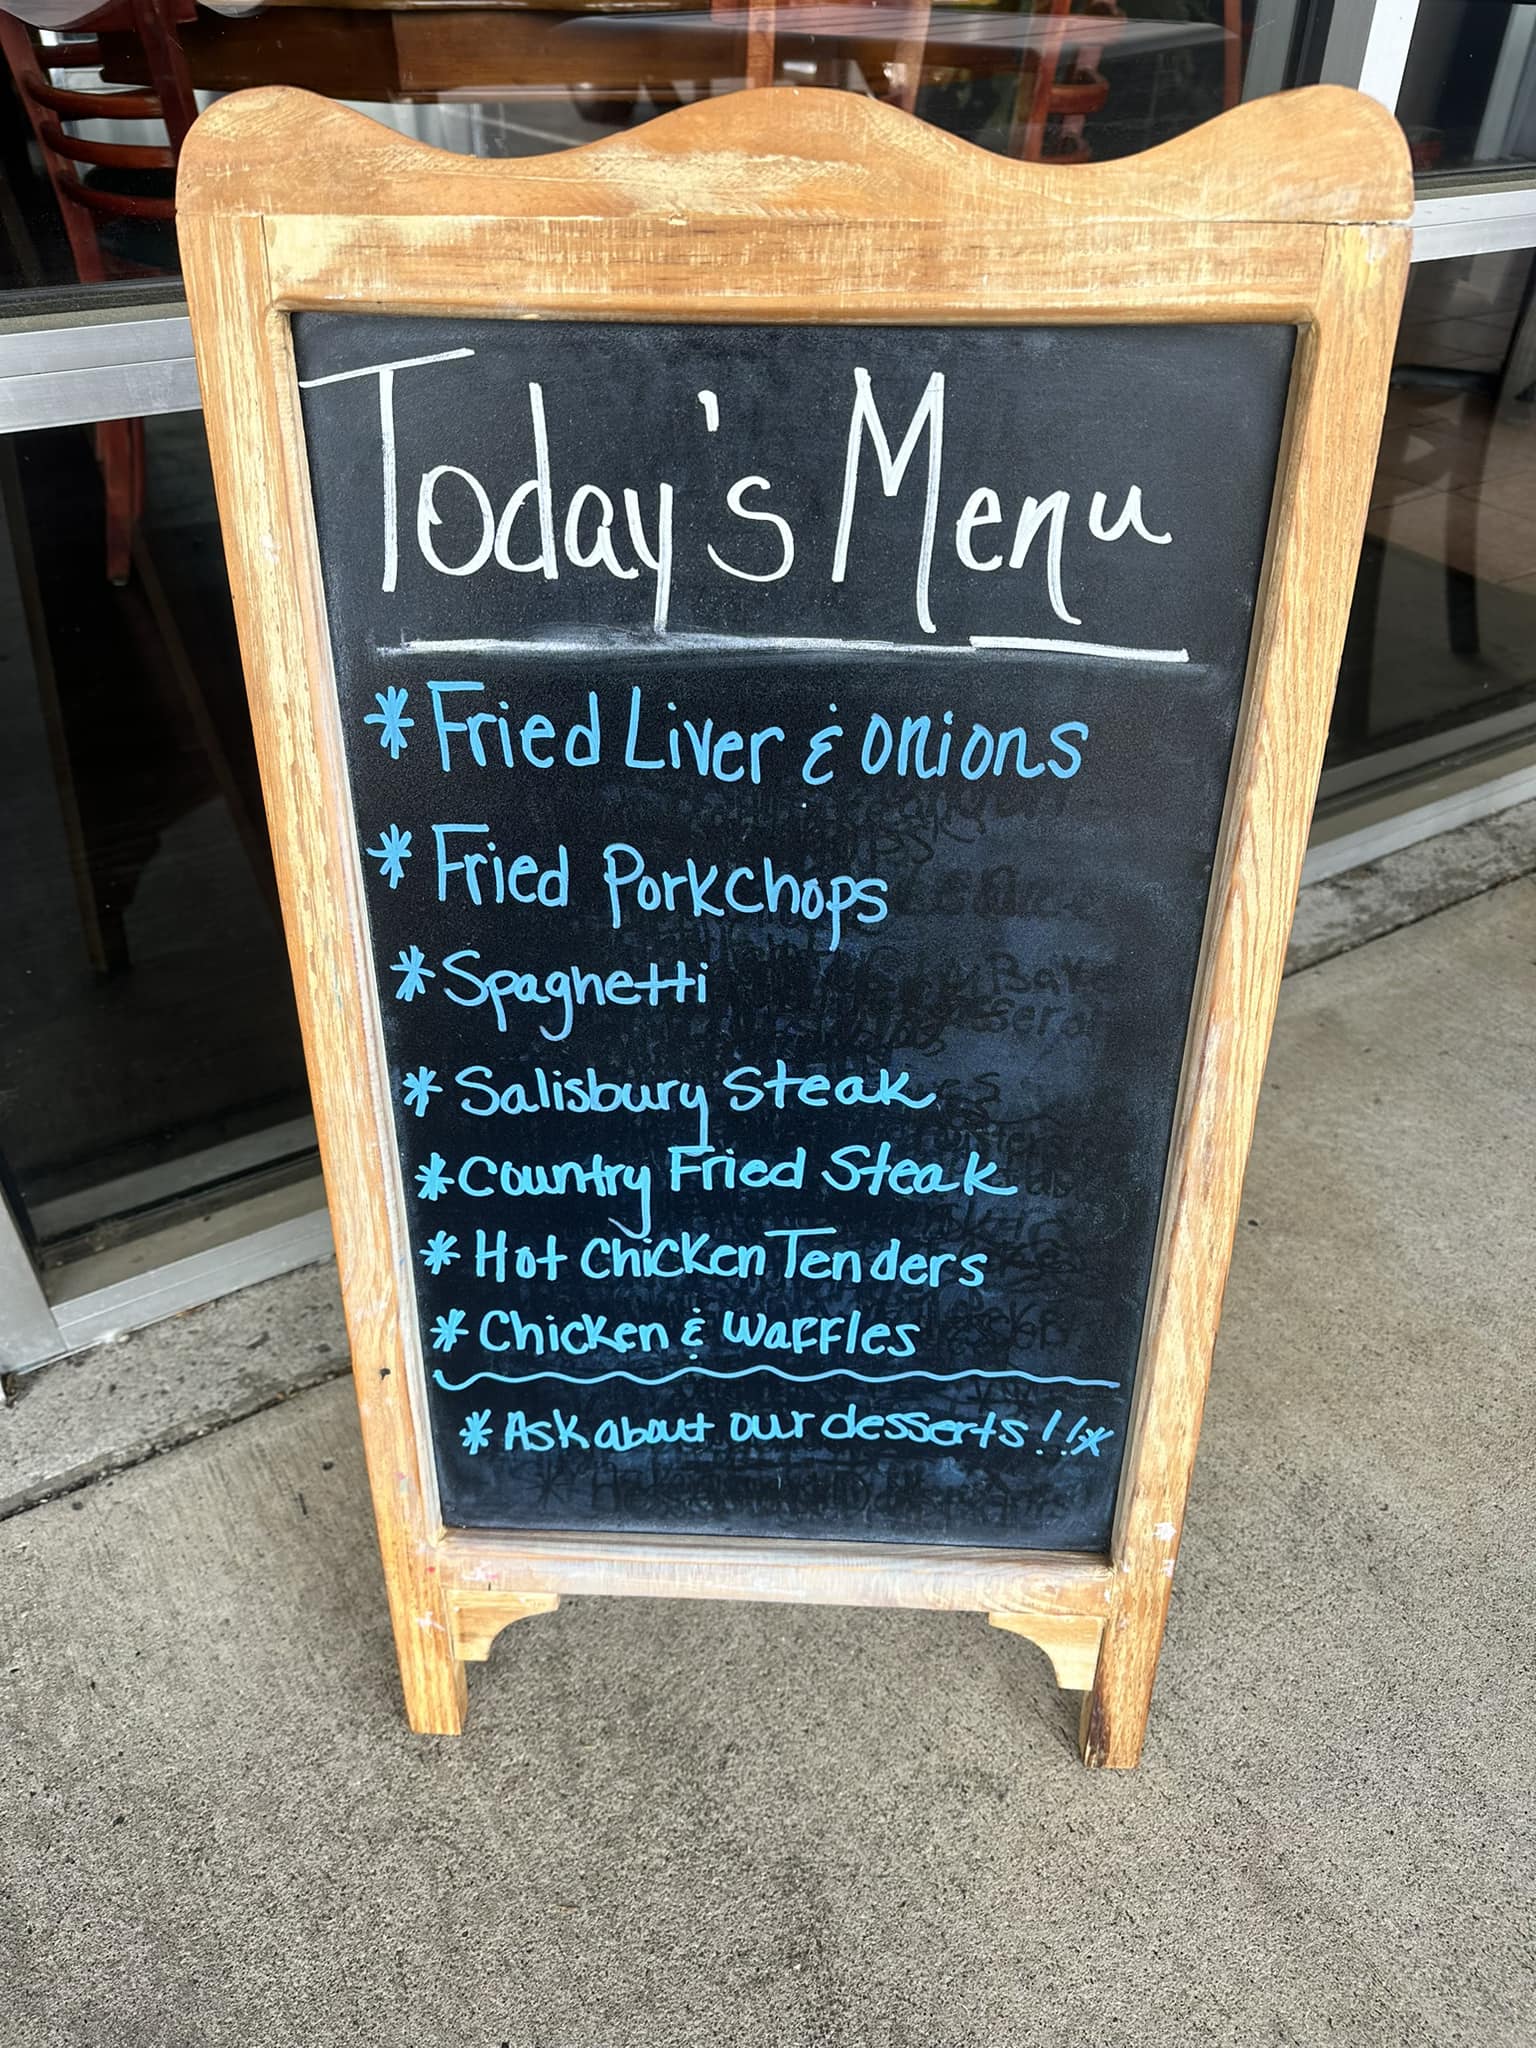 Today's Menu
* Fried Liver & Onions
* Fried Porkchops
* Spaghetti
* Salisbury Steak
* Country Fried Steak
* Hot Chicken Tenders
* Chicken & Waffles
* Ask about our desserts!!*